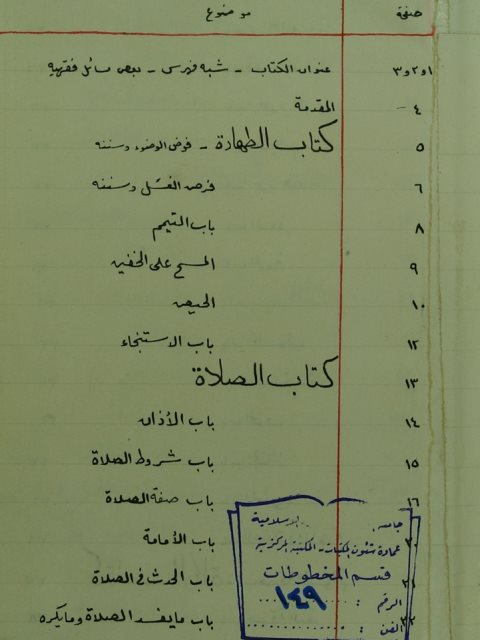 صفحة موضوع
١و٢و٣ عنوان الكتاب - شبه فهرس - بعض مسائل فقهيه
٤ - المقدمة
٥ كتاب الطهارة - فرض الوضوء وسننه
٦ فرض الغسل وسننه
٨ باب التيمم
٩ المسح على الخفين
١٠ الحيض
١٢ باب الاستنجاء
١٣ كتاب الصلاة
١٤ باب الأذان
١٥ باب شروط الصلاة
١٦ باب صفة الصلاة
٢٠ باب الأمامة
٢١ باب الحدث في الصلاة
٢٢ باب ما يفسد الصلاة وما يكره
جامعة الإسلامية
عمادة شئون المكتبات - المكتبة المركزية
قسم المخطوطات
الرقم : ١٤٩
الفن :